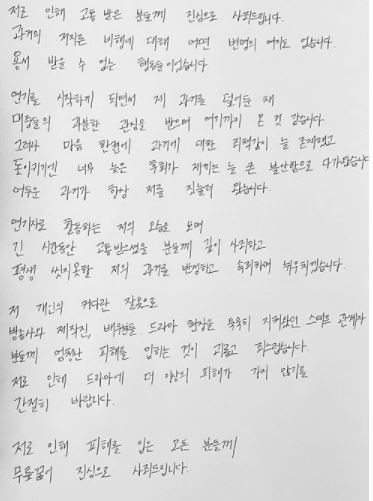 저로 인해 고통 받은 분들께 진심으로 사죄드립니다.
과거의 저지른 비행에 대해 어떤 변명의 여지도 없습니다.
용서 받을 수 없는 행동들이었습니다.
연기를 시작하게 되면서 제 과거를 덮어둔 채
대중들의 과분한 관심을 받으며 여기까지 온 것 같습니다.
그러나 마음 한켠에 과거에 대한 죄책감이 늘 존재했고
돌이키기엔 너무 늦은 후회가 제게는 늘 큰 불안함으로 다가왔습니다.
어두운 과거가 항상 저를 짓눌러 왔습니다.
연기자로 활동하는 저의 모습을 보며
긴 시간동안 고통받으셨을 분들께 깊이 사죄하고
평생 씻지못할 저의 과거를 반성하고 속죄하며 뉘우치겠습니다.
저 개인의 커다란 잘못으로
방송사와 제작진, 배우들, 드라마 현장을 묵묵히 지켜왔던 스태프 관계자
분들께 엄청난 피해를 입히는 것이 괴롭고 죄스럽습니다.
저로 인해 드라마에 더 이상의 피해가 가지 않기를
간절히 바랍니다.
저로 인해 피해를 입은 모든 분들께
무릎꿇어 진심으로 사죄드립니다.